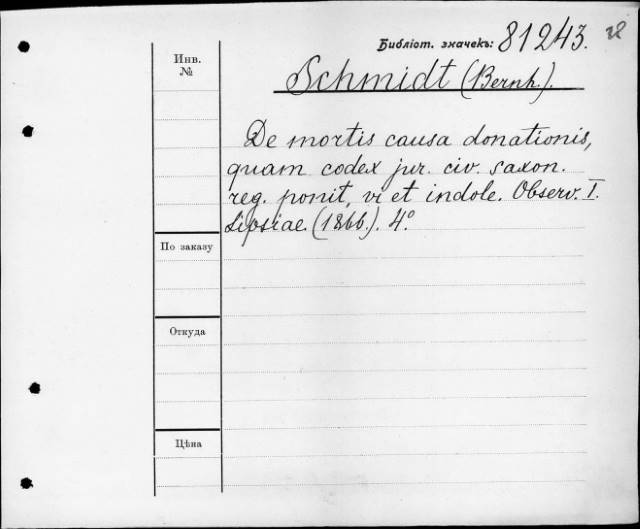 Библіот. значекъ: 81243.
Инв. №
Schmidt (Bernh.).
De mortis causa donationis,
quam codex jur. civ. saxon.
reg. ponit, vi et indole. Observ. I.
Lipsiae. (1866.). 4°.
По заказу
Откуда
Цѣна